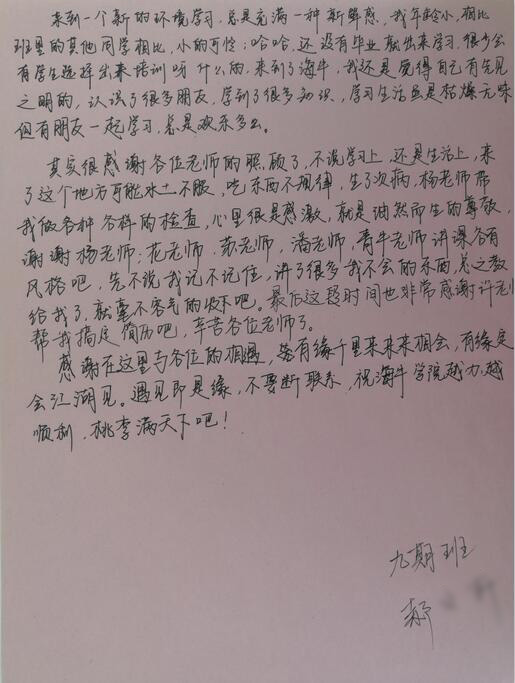 来到一个新的环境学习，总是充满一种新鲜感，我年龄小，相比
班里的其他同学相比，小的可怜；哈哈，还没有毕业就出来学习，很少会
有学生选择出来培训呀什么的，来到了海牛，我还是觉得自己有先见
之明的，认识了很多朋友，学到了很多知识，学习生活虽是枯燥无味
但有朋友一起学习，总是欢乐多么。
其实很感谢各位老师的照顾了，不说学习上，还是生活上，来
了这个地方可能水土不服，吃东西不规律，生了次病，杨老师帮
我做各种各样的检查，心里很是感激，就是油然而生的尊敬，
谢谢杨老师；花老师，苏老师，潘老师，青牛老师讲课各有
风格吧，先不说我记不记住，讲了很多我不会的东西，总之教
给我了，就毫不客气的收下吧。最后这段时间也非常感谢许老师
帮我搞定简历吧，辛苦各位老师了。
感谢在这里与各位的相遇，若有缘千里来来来相会，有缘定
会江湖见。遇见即是缘，不要断联系，祝海牛学院越办越
顺利，桃李满天下吧！
九期班
郝